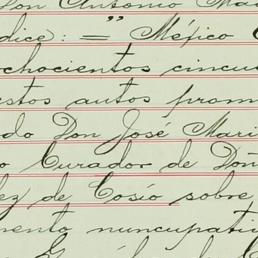 Don Antonio Ma
dice: = " Méjico
ochocientos cincu
estos autos prom
do Don José Mari
o Curador de Doñ
ez de Cosío sobre
mento nuncupati